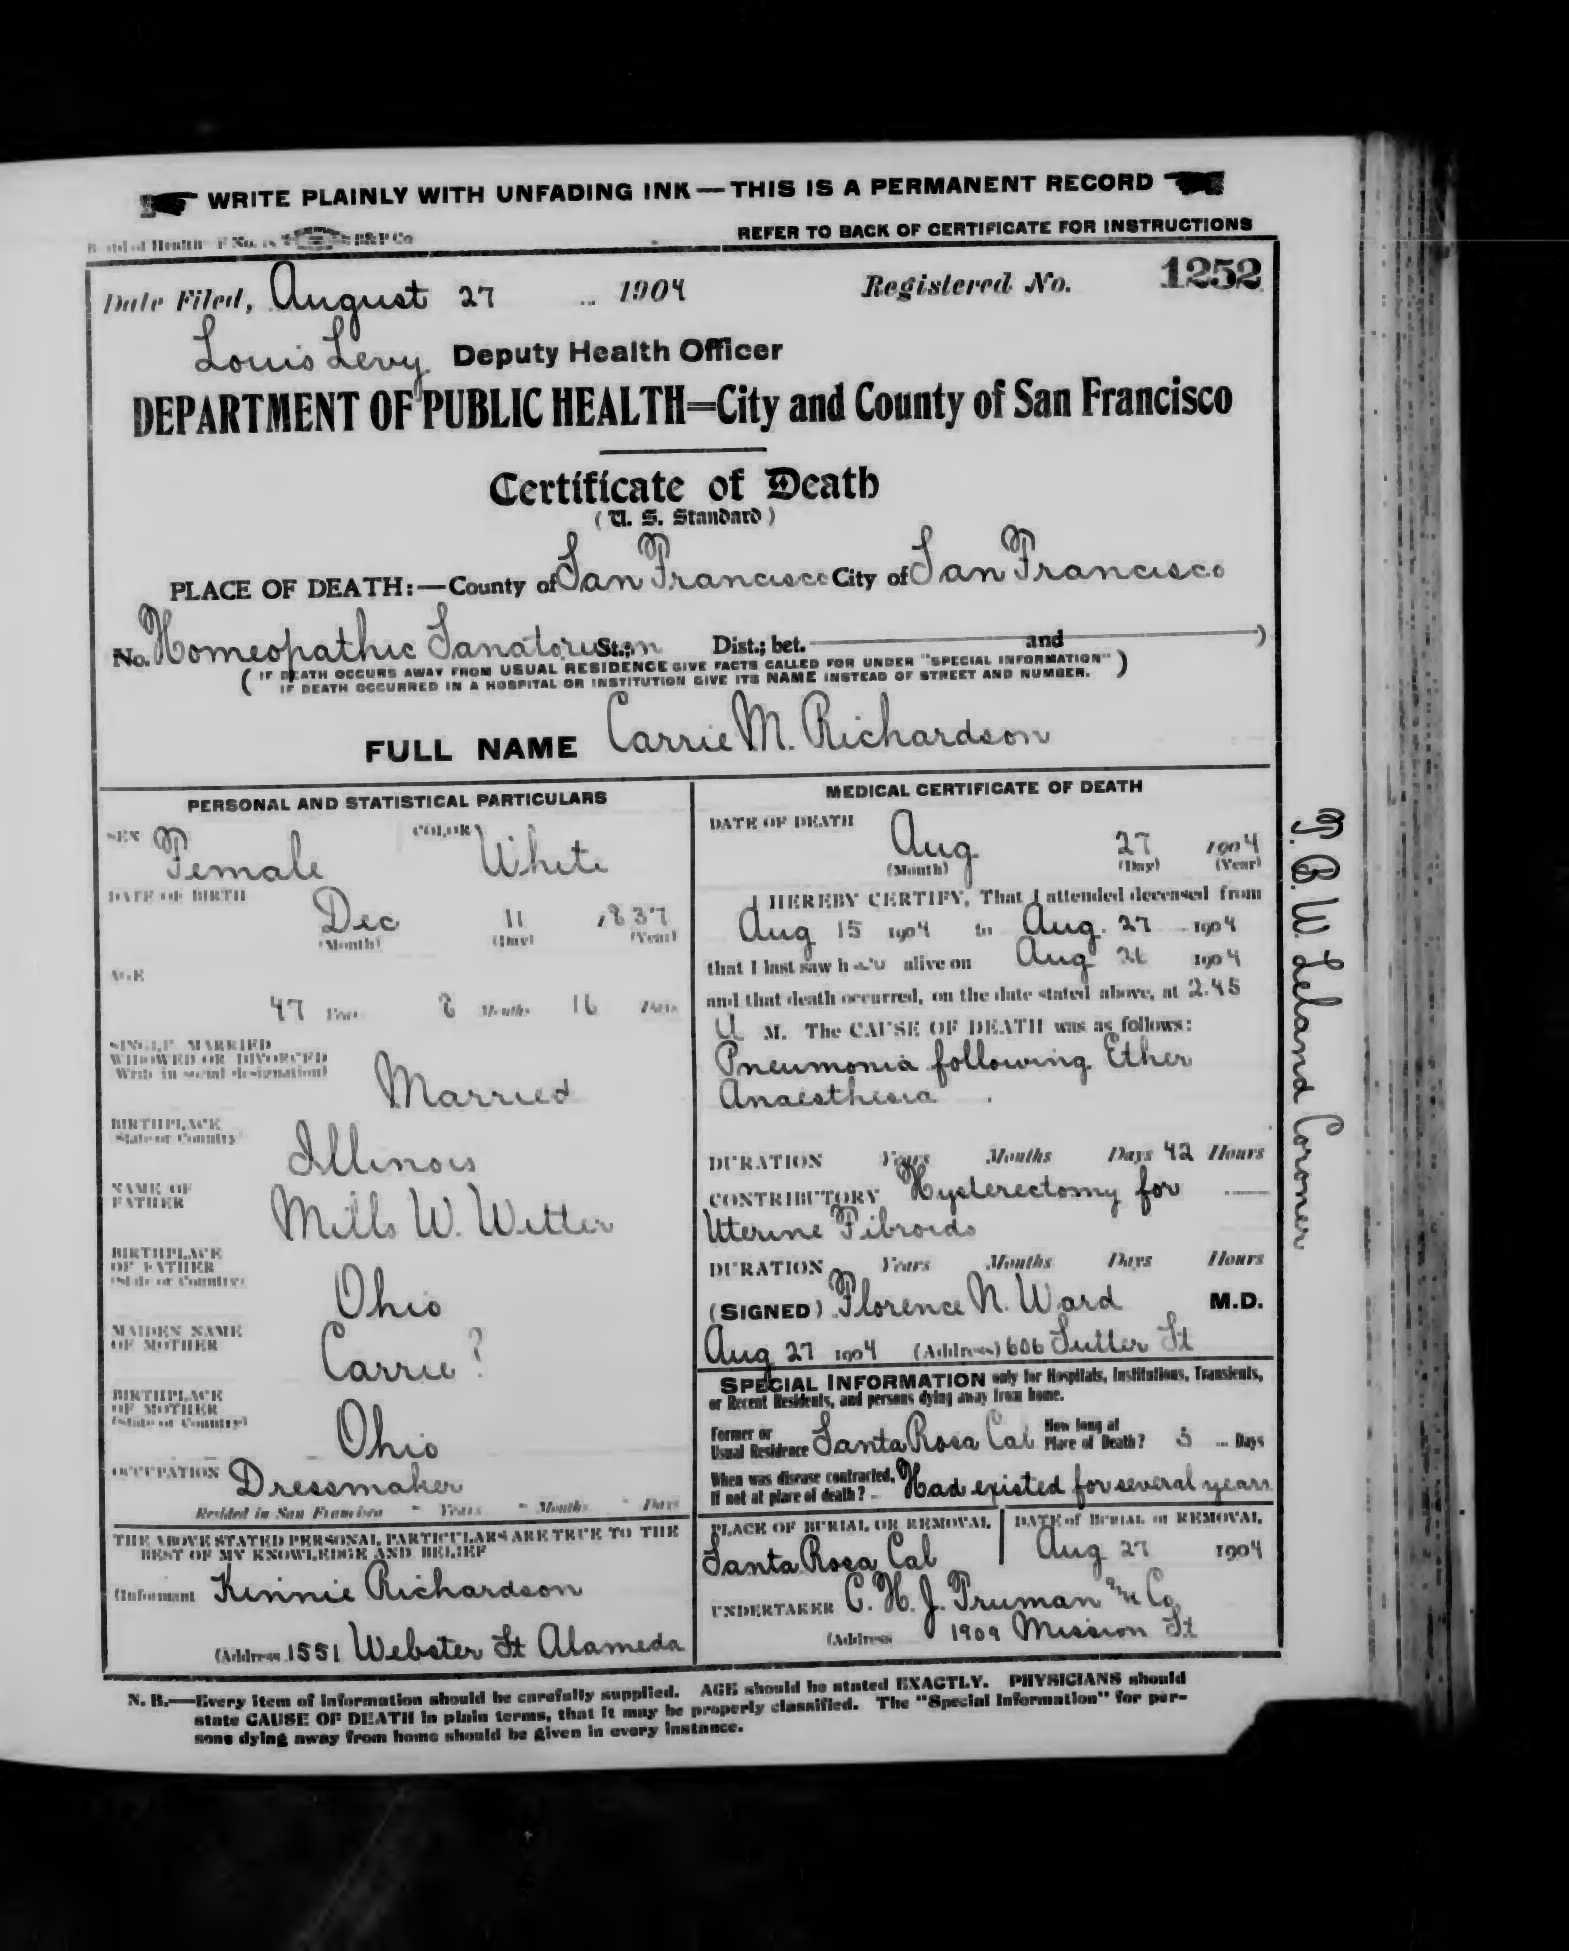 WRITE PLAINLY WITH UNFADING INK — THIS IS A PERMANENT RECORD
Board of Health F No. B&P Co
REFER TO BACK OF CERTIFICATE FOR INSTRUCTIONS
Date Filed, August 27 1904 Registered No. 1252
Louis Levy Deputy Health Officer
DEPARTMENT OF PUBLIC HEALTH=City and County of San Francisco
Certificate of Death
(U. S. Standard)
PLACE OF DEATH:—County of San Francisco City of San Francisco
No. Homeopathic Sanatorium St.; Dist.; bet. and )
( IF DEATH OCCURS AWAY FROM USUAL RESIDENCE GIVE FACTS CALLED FOR UNDER "SPECIAL INFORMATION" )
IF DEATH OCCURRED IN A HOSPITAL OR INSTITUTION GIVE ITS NAME INSTEAD OF STREET AND NUMBER.
FULL NAME Carrie M. Richardson
PERSONAL AND STATISTICAL PARTICULARS
SEX Female COLOR White
DATE OF BIRTH
Dec 11 1837
(Month) (Day) (Year)
AGE
47 Years 8 Months 16 Days
SINGLE MARRIED
WIDOWED OR DIVORCED
Write in social designation)
Married
BIRTHPLACE
State or Country
Illinois
NAME OF
FATHER
Mills W. Witter
BIRTHPLACE
OF FATHER
(State or Country)
Ohio
MAIDEN NAME
OF MOTHER
Carrie ?
BIRTHPLACE
OF MOTHER
(State or Country)
Ohio
OCCUPATION Dressmaker
Resided in San Francisco " Years " Months " Days
THE ABOVE STATED PERSONAL PARTICULARS ARE TRUE TO THE
BEST OF MY KNOWLEDGE AND BELIEF
(Informant Kinnie Richardson
(Address 1551 Webster St Alameda
MEDICAL CERTIFICATE OF DEATH
DATE OF DEATH
Aug 27 1904
(Month) (Day) (Year)
I HEREBY CERTIFY, That I attended deceased from
Aug 15 1904 to Aug. 27 1904
that I last saw h alive on Aug 26 1904
and that death occurred, on the date stated above, at 2.45
M. The CAUSE OF DEATH was as follows:
Pneumonia following Ether
Anaesthesia .
DURATION Years Months Days 42 Hours
CONTRIBUTORY Hysterectomy for
Uterine Fibroids
DURATION Years Months Days Hours
(SIGNED) Florence N. Ward M.D.
Aug 27 1904 (Address) 606 Sutter St
SPECIAL INFORMATION only for Hospitals, Institutions, Transients,
or Recent Residents, and persons dying away from home.
Former or
Usual Residence Santa Rosa Cal How long at
Place of Death? Days
When was disease contracted,
If not at place of death? Had existed for several years
PLACE OF BURIAL OR REMOVAL DATE of BURIAL or REMOVAL
Santa Rosa Cal Aug 27 1904
UNDERTAKER C. H. J. Truman & Co
(Address 1909 Mission St
N. B.—Every item of information should be carefully supplied. AGE should be stated EXACTLY. PHYSICIANS should
state CAUSE OF DEATH in plain terms, that it may be properly classified. The "Special Information" for per-
sons dying away from home should be given in every instance.
T. B. W. Leland Coroner